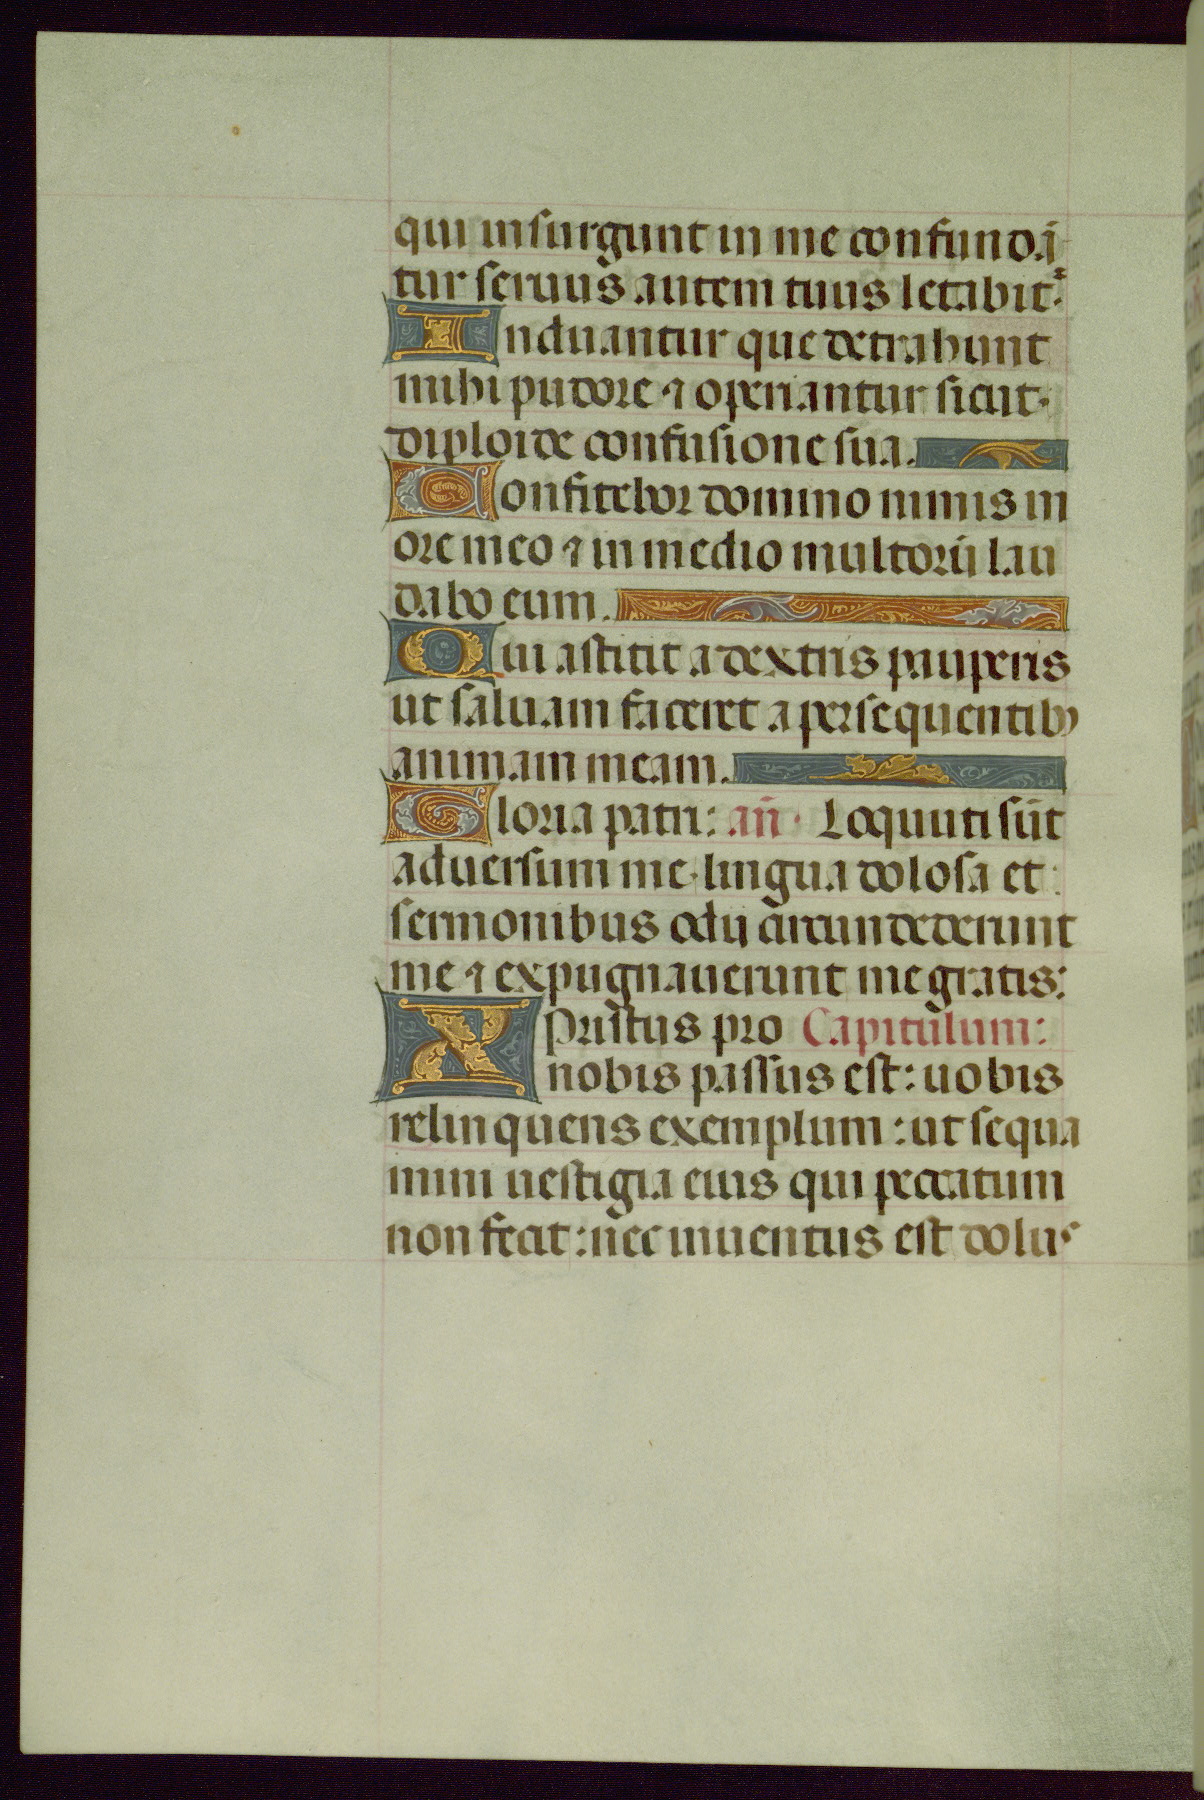 qui insurgunt in me confundā
tur seruus autem tuus letabitᷣ.
Induantur que detrahunt
mihi pudore ⁊ operiantur sicut
diploide confusione sua.
Confitebor domino nimis in
ore meo ⁊ in medio multorū lau
dabo eum.
Qui astitit a dextris pauperis
ut saluam faceret a persequentibꝰ
animam meam.
Gloria patri: añ. Loquuti sūt
aduersum me lingua dolosa et
sermonibus odij circundederunt
me ⁊ expugnauerunt me gratis:
Xpristus pro Capitulum:
nobis passus est: uobis
relinquens exemplum: ut sequa
mini uestigia eius qui peccatum
non fecit: nec inuentus est dolus